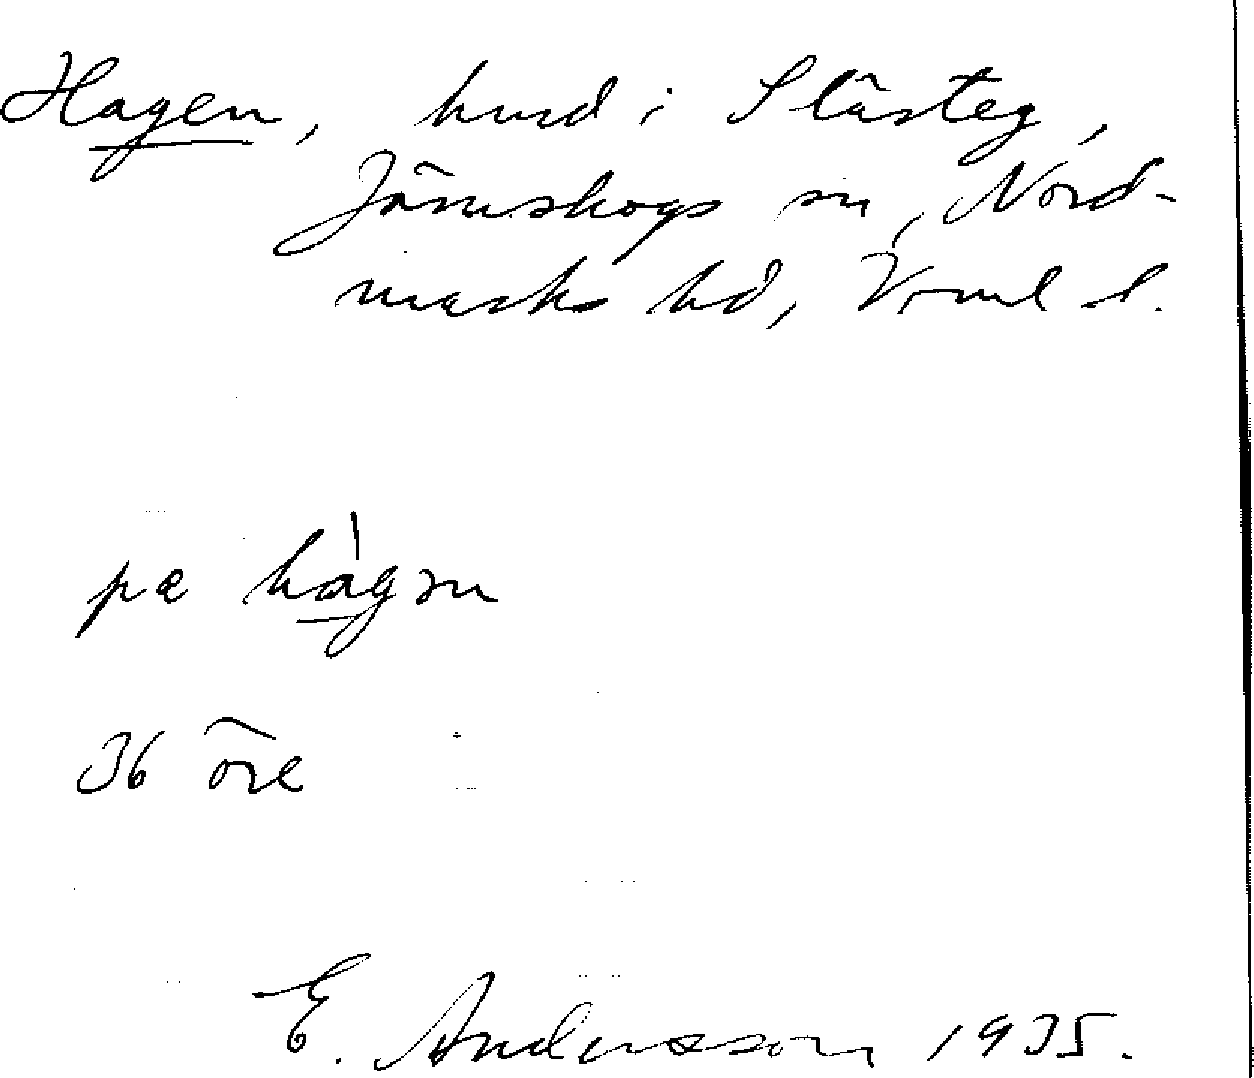 Hagen, hmd i Slästeg,
Järnskogs sn, Nord-
marks hd, Vrml l.
pæ hàgɔn
36 öre
E. Andersson 1935.